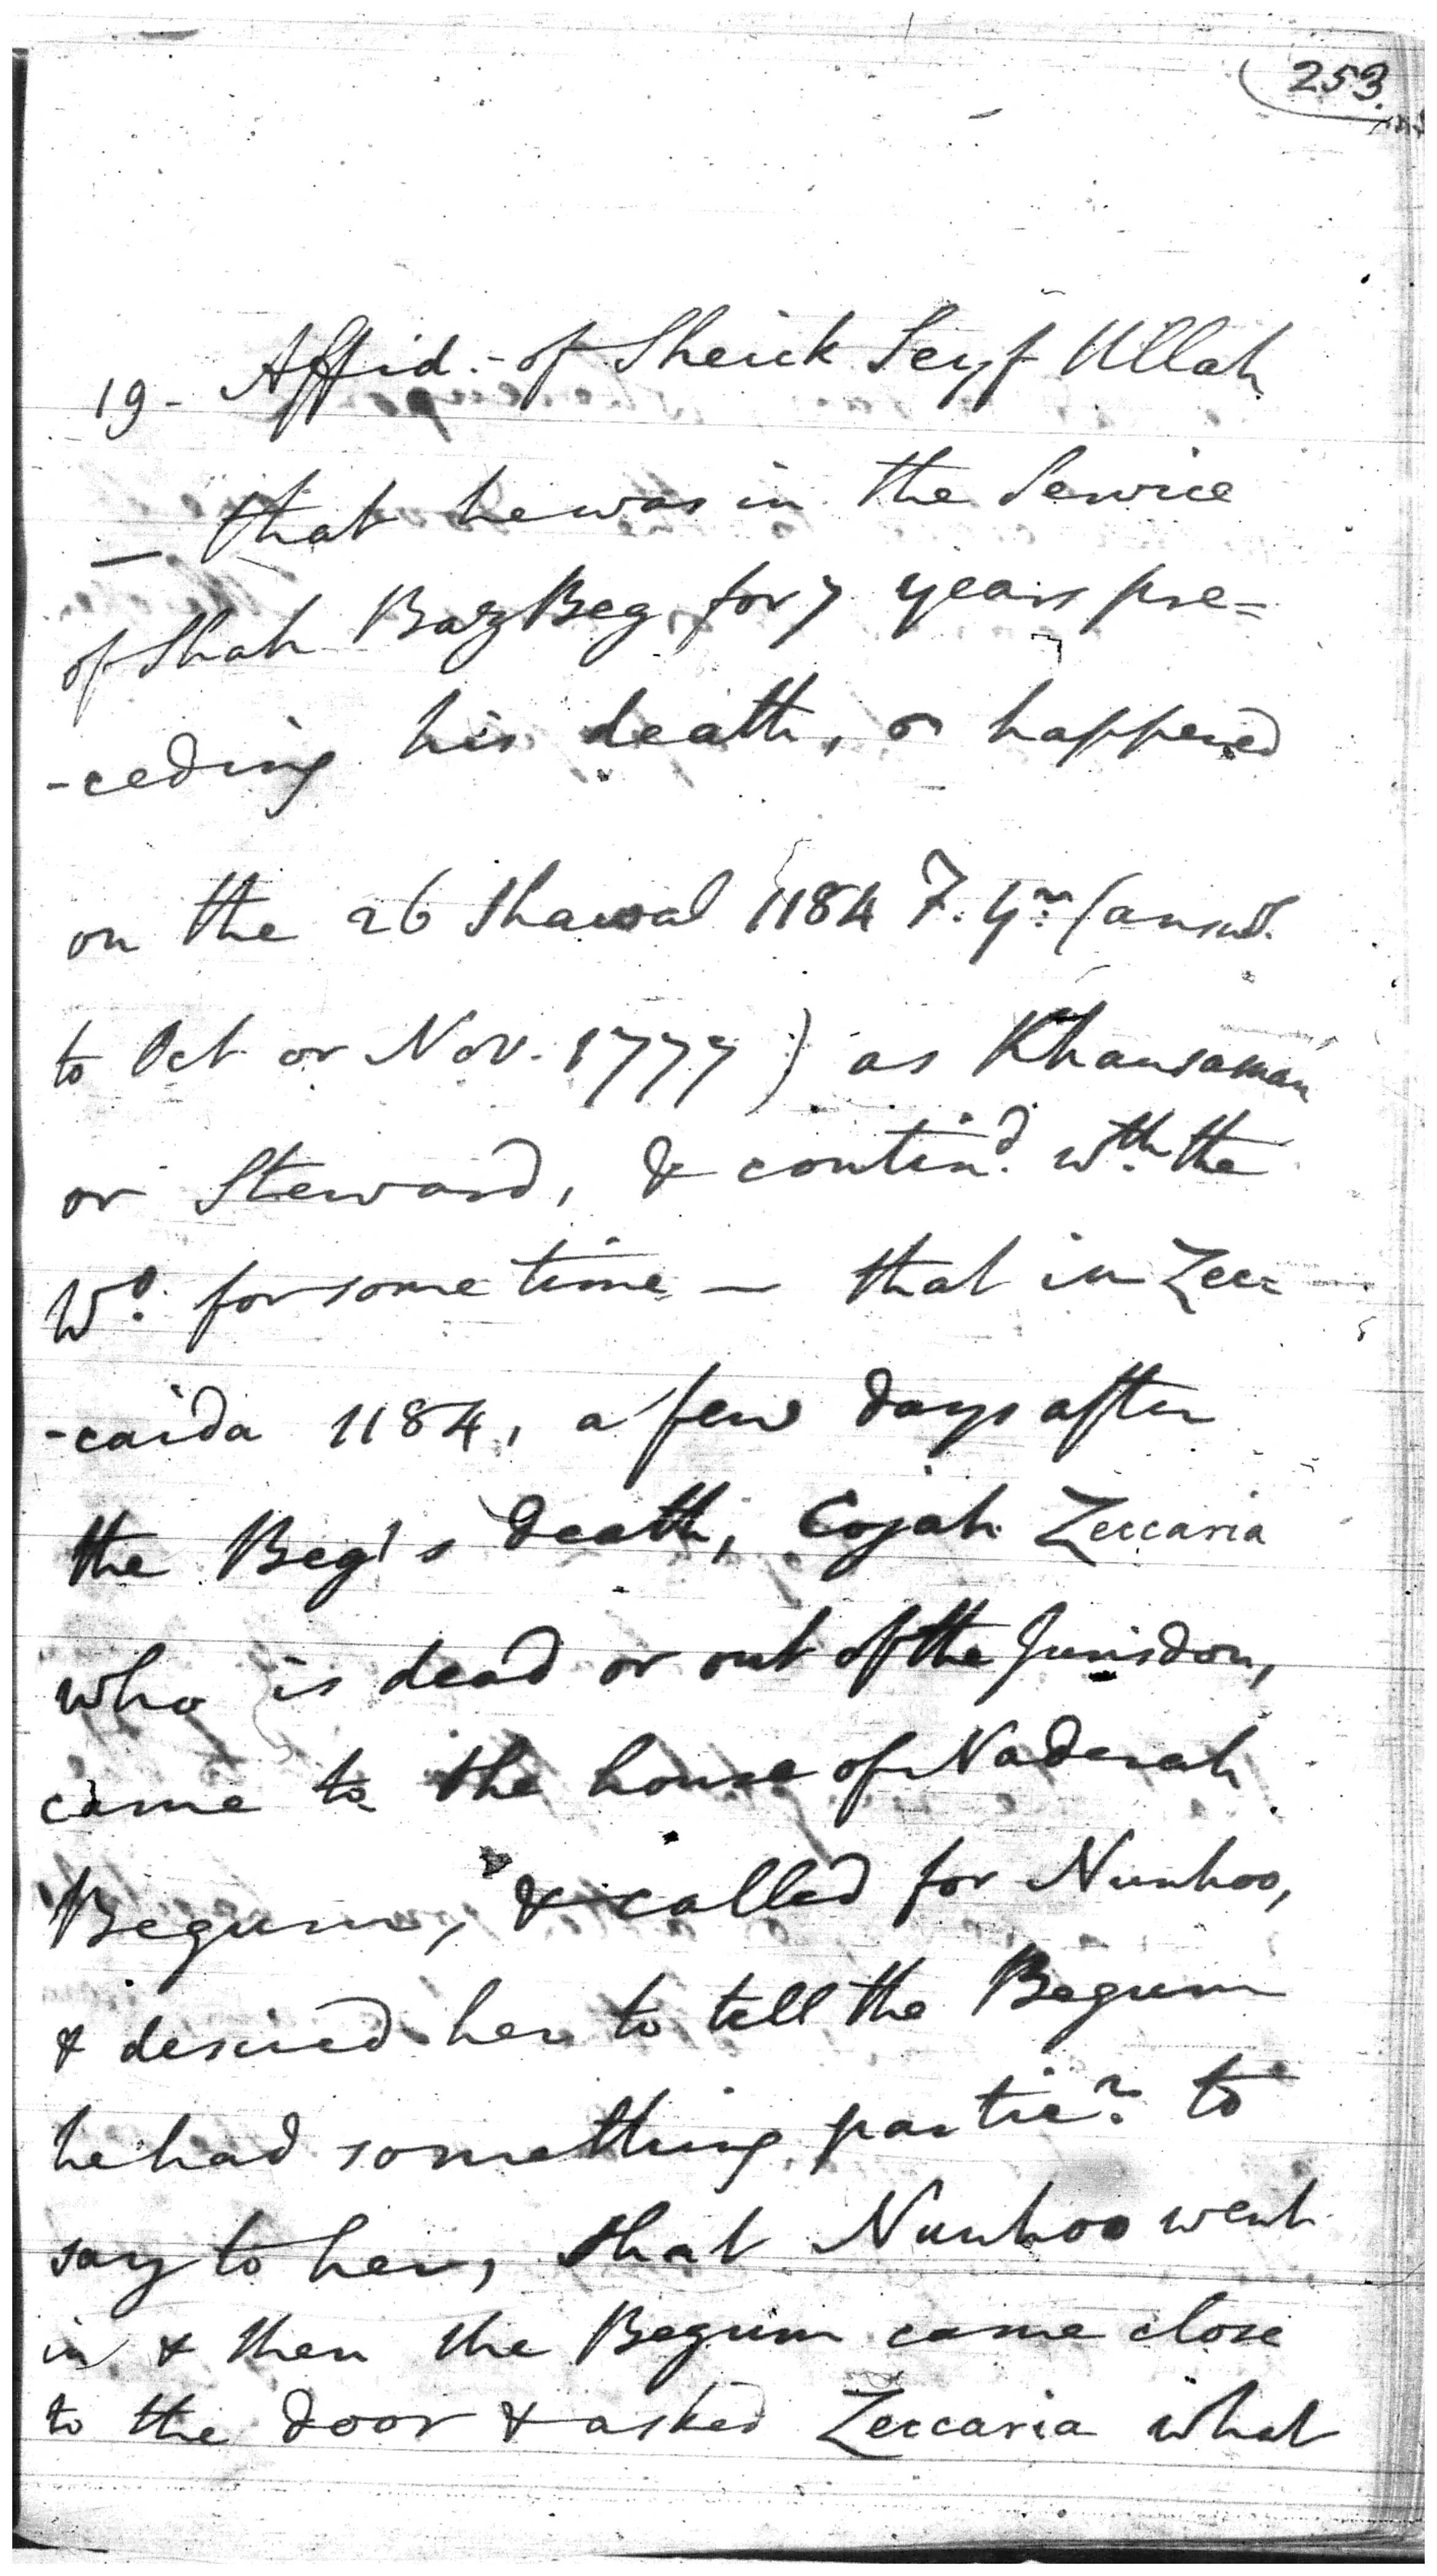 253
19- Affid.- of Sheick Seyf Ullah
— that he was in the Service
of Shah Baz Beg for 7 years pre=
-ceding his death, on happened
on the 26 Shawal 1184 F. Yr. (answd.
to Oct or Nov. 1777) as Khansaman
or Steward, & contind. wth. the
Wo. for some time — that in Zee=
-caida 1184, a few days after
the Beg's death, Cojah Zeccaria
who is dead or out of the Jurisdon,
came to the house of Naderah
Begum, & called for Nunhoo,
& desired her to tell the Begum
he had something particr. to
say to her, that Nunhoo went
in & then the Begum came close
to the door & asked Zeccaria what